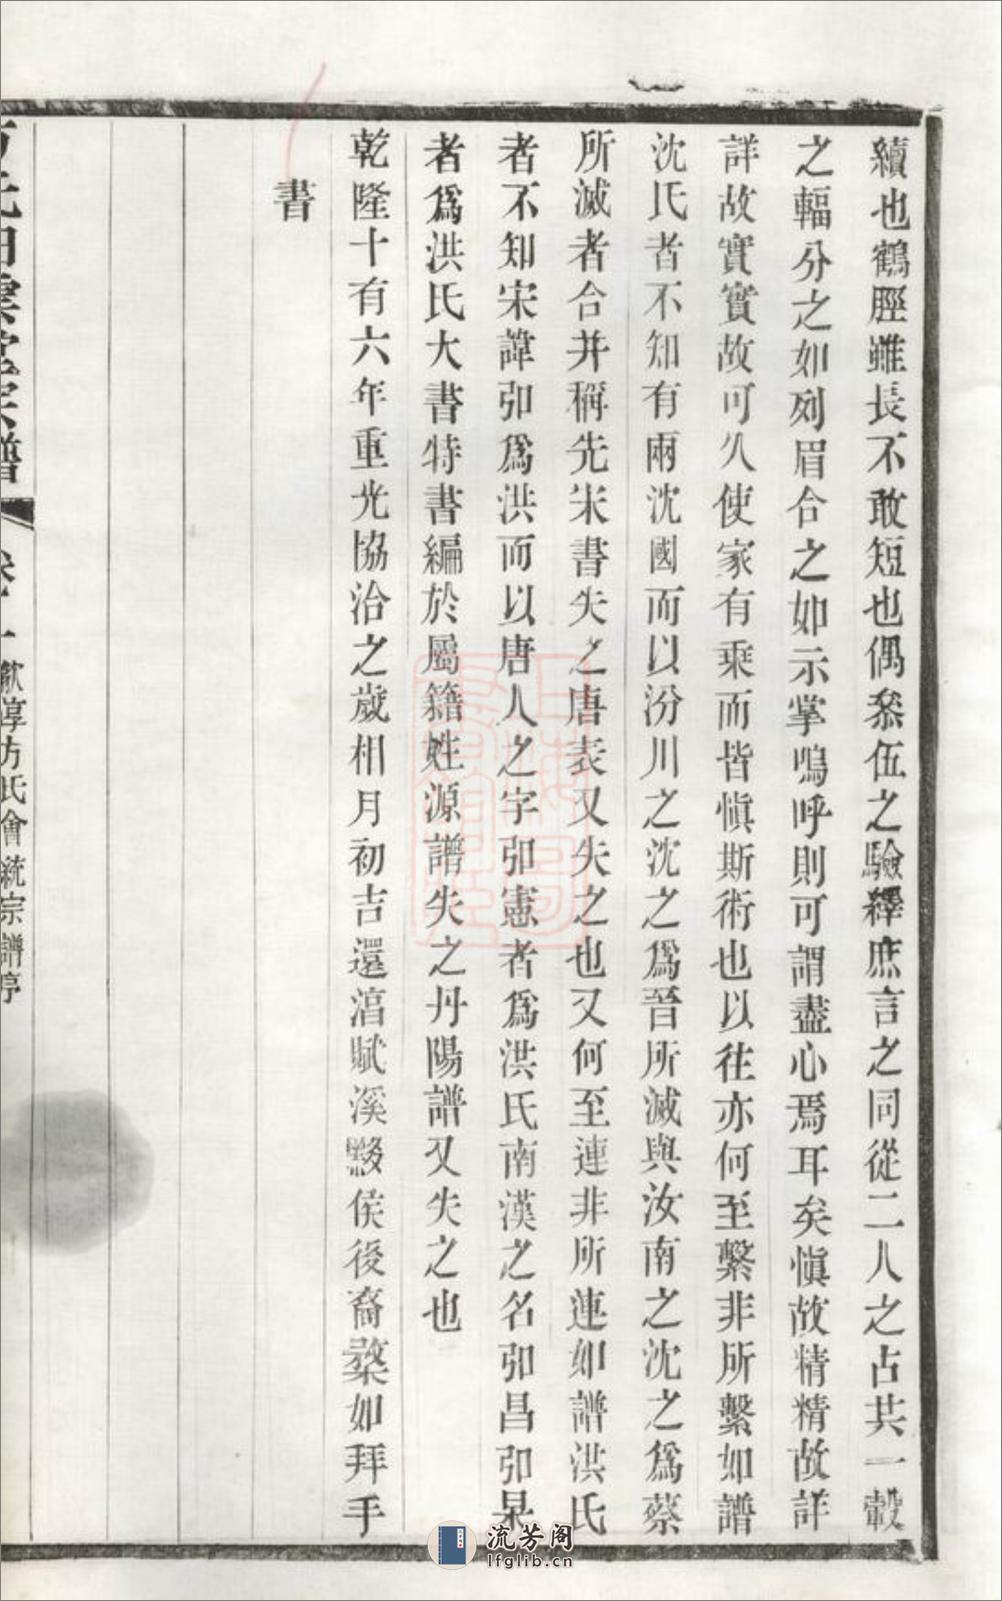 續也鶴脛雖長不敢短也偶叅伍之驗繹庶言之同從二人之占共一轂
之輻分之如列眉合之如示掌嗚呼則可謂盡心焉耳矣愼故精精故詳
詳故實實故可久使家有乘而皆愼斯術也以往亦何至繫非所繫如譜
沈氏者不知有兩沈國而以汾川之沈之爲晉所滅與汝南之沈之爲蔡
所滅者合并稱先宋書失之唐表又失之也又何至連非所連如譜洪氏
者不知宋諱弘爲洪而以唐人之字弘憲者爲洪氏南漢之名弘昌弘杲
者爲洪氏大書特書編於屬籍姓源譜失之丹陽譜又失之也
乾隆十有六年重光協洽之歲相月初吉還淳賦溪黟侯後裔楘如拜手
書
方氏白雲堂宗譜
卷一
歙淳方氏會統宗譜序
流芳阁
lfglib.cn